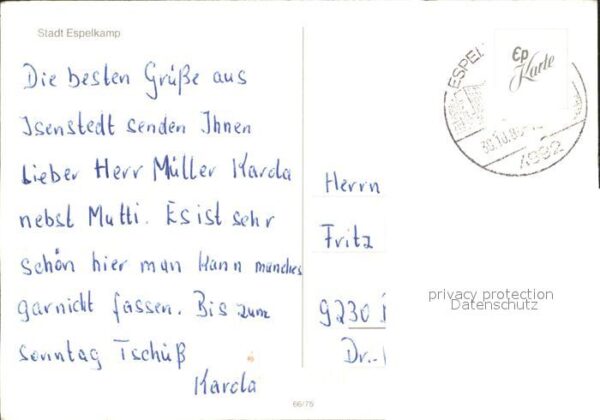 Stadt Espelkamp
Die besten Grüße aus
Isenstedt senden Ihnen
Lieber Herr Müller Karola
nebst Mutti. Es ist sehr
schön hier man kann manches
garnicht fassen. Bis zum
Sonntag Tschüß
Karola
66/75
Ep
Karte
ESPEL
4992
Herrn
Fritz
9230
Dr.-
privacy protection
Datenschutz